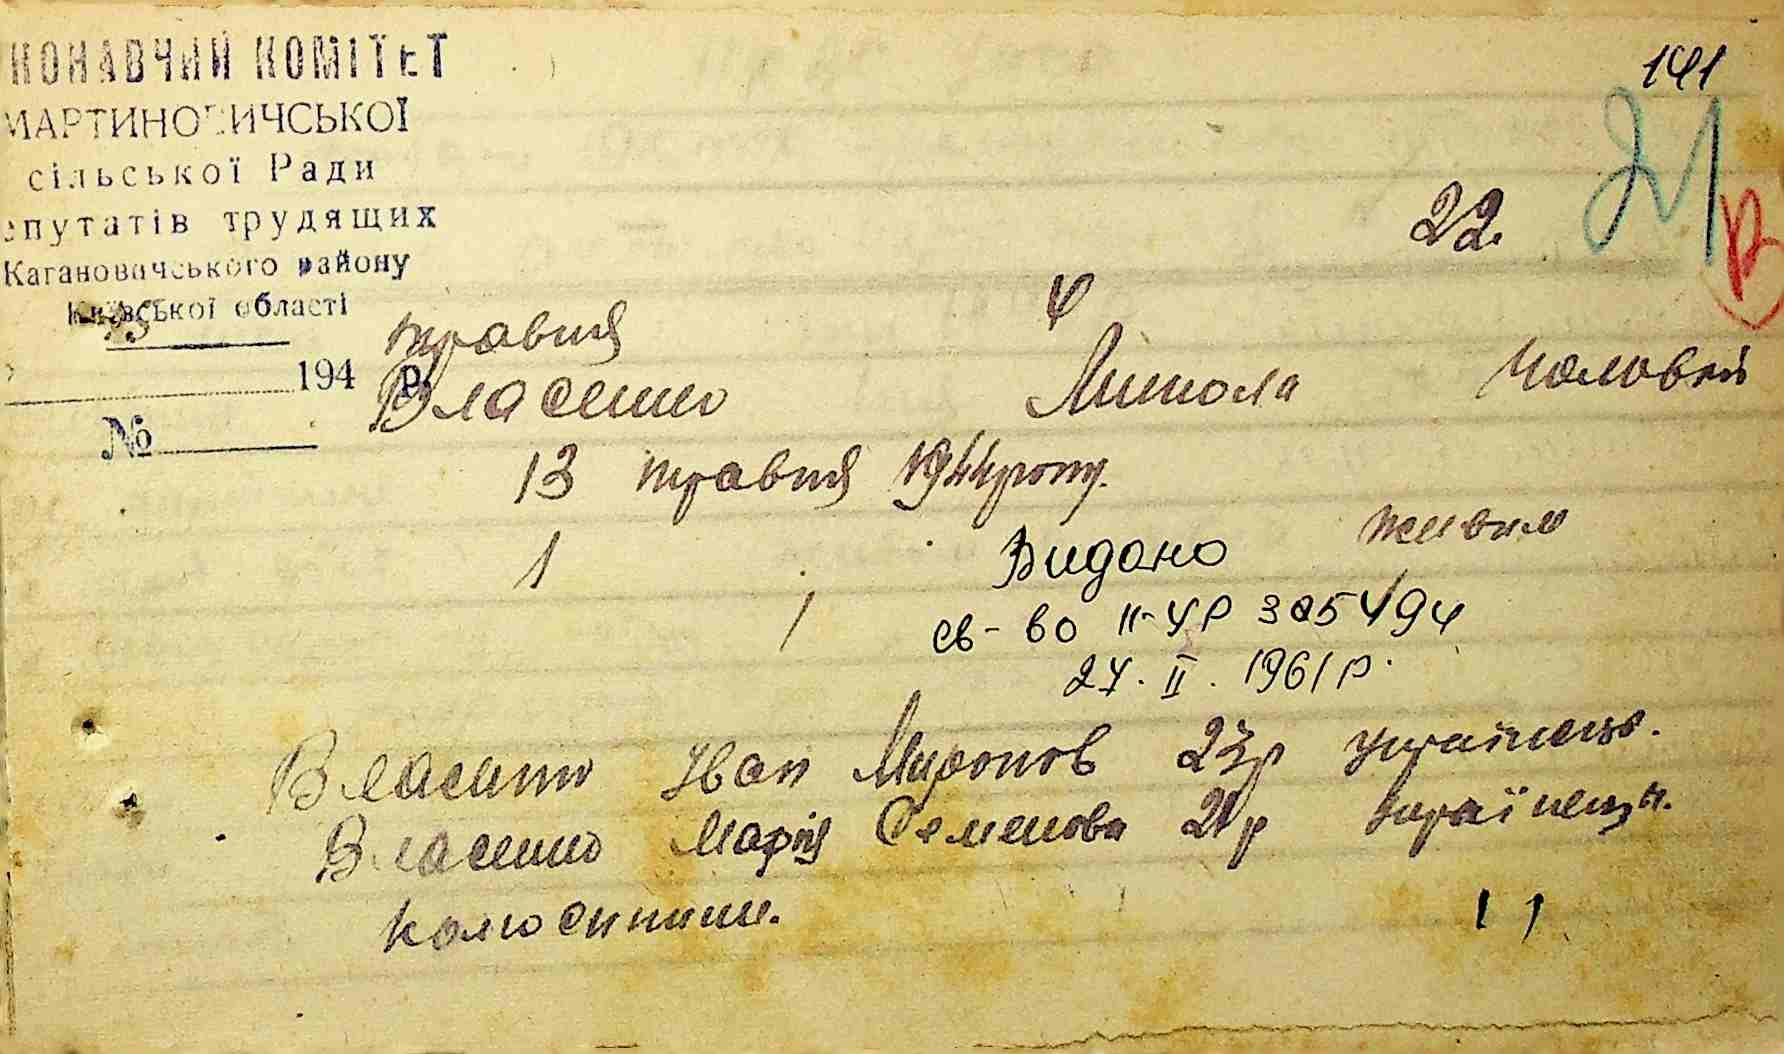 141
НОНАВЧИЙ КОМІТЕТ
21
МАРТИНОВИЧСЬКОЇ
сільської Ради
епутатів трудящих
22.
Р
Кагановичського району
Київської області
4
травня
194 р.
Власенко Микола чоловік
№
13 травня 1944 року.
1 Видано живим
1 св-во II-УР 305494
27. II. 1961 р.
Власенко Іван Миронов 23р українець.
Власенко Марія Семенова 21р українець.
колгоспники. 1 1